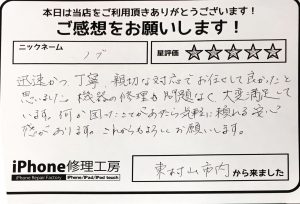 本日は当店をご利用頂きありがとうございます!
ご感想をお願いします!
ニックネーム
ノブ
星評価
迅速かつ、丁寧、親切な対応でお任せして良かったと
思いました。機器の修理も問題なく、大変満足して
います。何か困ったことがあったら気軽に頼れる安心
感があります。これからもよろしくお願いします。
iPhone修理工房
iPhone Repair Factory
iPhone/iPad/iPod touch
東村山市内
から来ました